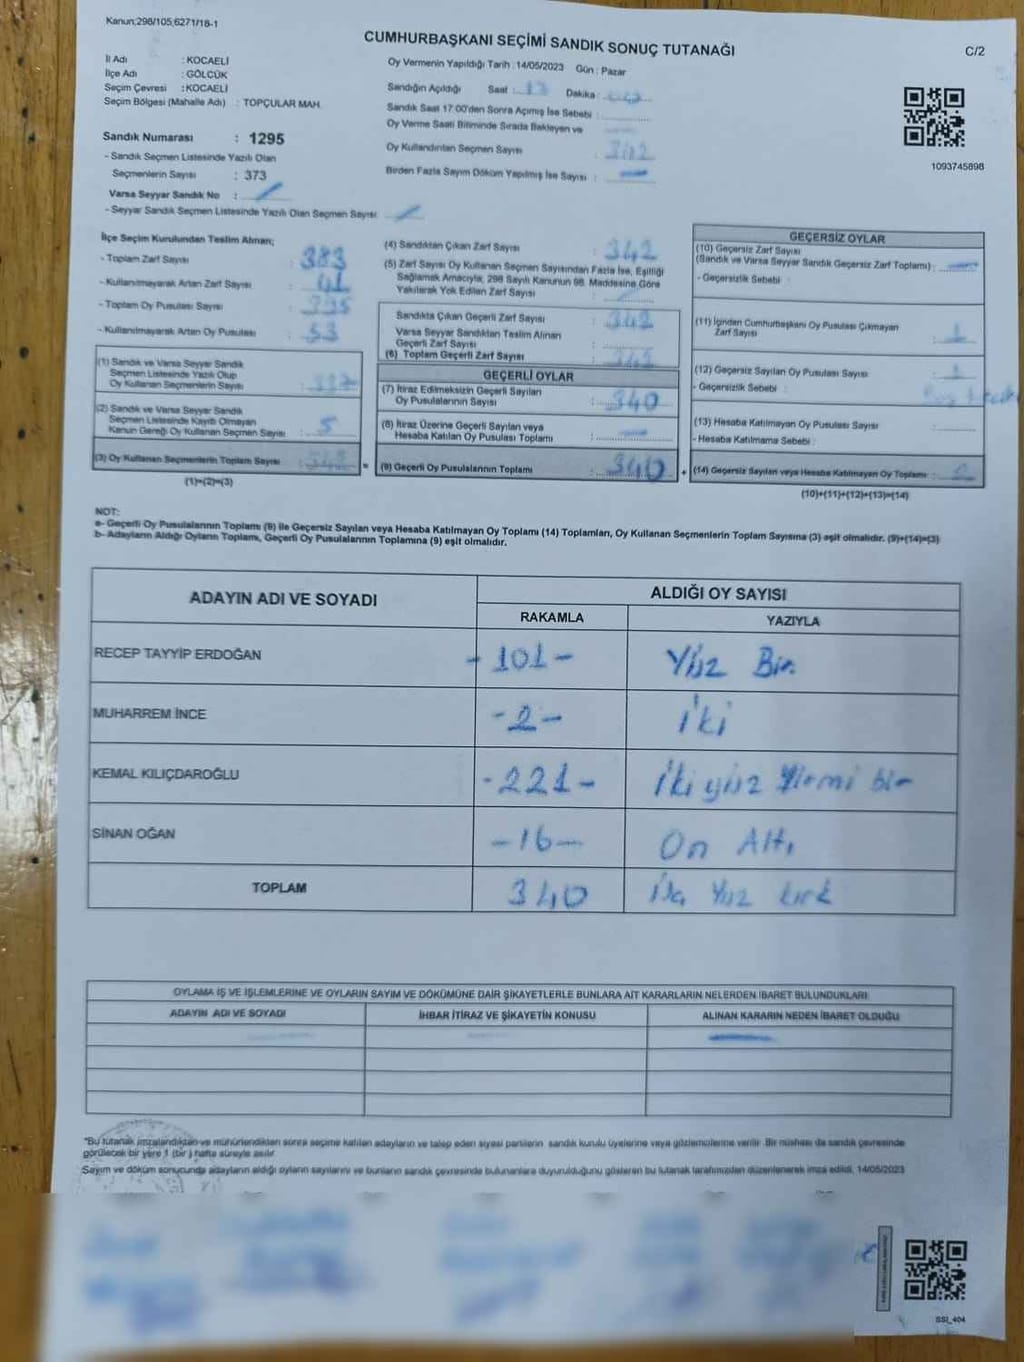 Kanun;298/105,6271/18-1
CUMHURBAŞKANI SEÇİMİ SANDIK SONUÇ TUTANAĞI
C/2
İl Adı : KOCAELİ
İlçe Adı : GÖLCÜK
Seçim Çevresi : KOCAELİ
Seçim Bölgesi (Mahalle Adı) : TOPÇULAR MAH.
Oy Vermenin Yapıldığı Tarih : 14/05/2023 Gün : Pazar
Sandığın Açıldığı Saat : 17 Dakika :
Sandık Saat 17:00'den Sonra Açımış İse Sebebi :
Oy Verme Saati Bitiminde Sırada Bekleyen ve
Oy Kullandırılan Seçmen Sayısı : 342
Birden Fazla Sayım Döküm Yapılmış İse Sayısı : —
1093745898
Sandık Numarası : 1295
- Sandık Seçmen Listesinde Yazılı Olan
Seçmenlerin Sayısı : 373
Varsa Seyyar Sandık No :
- Seyyar Sandık Seçmen Listesinde Yazılı Olan Seçmen Sayısı:
İlçe Seçim Kurulundan Teslim Alınan;
- Toplam Zarf Sayısı : 383
- Kullanılmayarak Artan Zarf Sayısı : 41
- Toplam Oy Pusulası Sayısı : 395
- Kullanılmayarak Artan Oy Pusulası : 53
(1) Sandık ve Varsa Seyyar Sandık
Seçmen Listesinde Yazılı Olup
Oy Kullanan Seçmenlerin Sayısı : 337
(2) Sandık ve Varsa Seyyar Sandık
Seçmen Listesinde Kayıtlı Olmayan
Kanun Gereği Oy Kullanan Seçmen Sayısı : 5
(3) Oy Kullanan Seçmenlerin Toplam Sayısı : 342
(1)+(2)=(3)
(4) Sandıktan Çıkan Zarf Sayısı : 342
(5) Zarf Sayısı Oy Kullanan Seçmen Sayısından Fazla İse, Eşitliği
Sağlamak Amacıyla, 298 Sayılı Kanunun 98. Maddesine Göre
Yakılarak Yok Edilen Zarf Sayısı :
Sandıkta Çıkan Geçerli Zarf Sayısı : 342
Varsa Seyyar Sandıktan Teslim Alınan
Geçerli Zarf Sayısı :
(6) Toplam Geçerli Zarf Sayısı : 342
GEÇERLİ OYLAR
(7) İtiraz Edilmeksizin Geçerli Sayılan
Oy Pusulalarının Sayısı : 340
(8) İtiraz Üzerine Geçerli Sayılan veya
Hesaba Katılan Oy Pusulası Toplamı : —
= (9) Geçerli Oy Pusulalarının Toplamı : 340 +
GEÇERSİZ OYLAR
(10) Geçersiz Zarf Sayısı
(Sandık ve Varsa Seyyar Sandık Geçersiz Zarf Toplamı) : —
- Geçersizlik Sebebi :
(11) İçinden Cumhurbaşkanı Oy Pusulası Çıkmayan
Zarf Sayısı : 1
(12) Geçersiz Sayılan Oy Pusulası Sayısı : 1
- Geçersizlik Sebebi :
(13) Hesaba Katılmayan Oy Pusulası Sayısı :
- Hesaba Katılmama Sebebi :
(14) Geçersiz Sayılan veya Hesaba Katılmayan Oy Toplamı : 2
(10)+(11)+(12)+(13)=(14)
NOT:
a- Geçerli Oy Pusulalarının Toplamı (9) ile Geçersiz Sayılan veya Hesaba Katılmayan Oy Toplamı (14) Toplamları, Oy Kullanan Seçmenlerin Toplam Sayısına (3) eşit olmalıdır. (9)+(14)=(3)
b- Adayların Aldığı Oyların Toplamı, Geçerli Oy Pusulalarının Toplamına (9) eşit olmalıdır.
ADAYIN ADI VE SOYADI
ALDIĞI OY SAYISI
RAKAMLA YAZIYLA
RECEP TAYYİP ERDOĞAN - 101 - Yüz Bir
MUHARREM İNCE - 2 - İki
KEMAL KILIÇDAROĞLU - 221 - İki yüz Yirmi bir
SİNAN OĞAN - 16 - On Altı
TOPLAM 340 Yüz kırk
OYLAMA İŞ VE İŞLEMLERİNE VE OYLARIN SAYIM VE DÖKÜMÜNE DAİR ŞİKAYETLERLE BUNLARA AİT KARARLARIN NELERDEN İBARET BULUNDUKLARI
ADAYIN ADI VE SOYADI İHBAR İTİRAZ VE ŞİKAYETİN KONUSU ALINAN KARARIN NEDEN İBARET OLDUĞU
*Bu tutanak imzalandıktan ve mühürlendikten sonra seçime katılan adayların ve talep eden siyasi partilerin sandık kurulu üyelerine veya gözlemcilerine verilir. Bir nüshası da sandık çevresinde
görülecek bir yere 1 (bir) hafta süreyle asılır.
Sayım ve döküm sonucunda adayların aldığı oyların sayılarını ve bunların sandık çevresinde bulunanlara duyurulduğunu gösteren bu tutanak tarafımızdan düzenlenerek imza edildi. 14/05/2023
SSİ_404